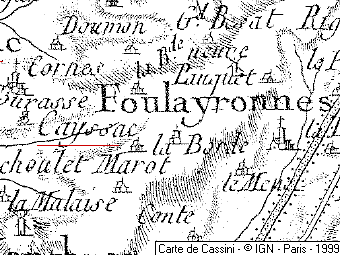 Doumon
Gd. Berat
Rig
C
Cornes
la Bde neuve
Pauquet
ourasse
Foulayronnes
Cayssac
la Borde
choulet
Marot
la Malaise
Conte
Carte de Cassini - © IGN - Paris - 1999